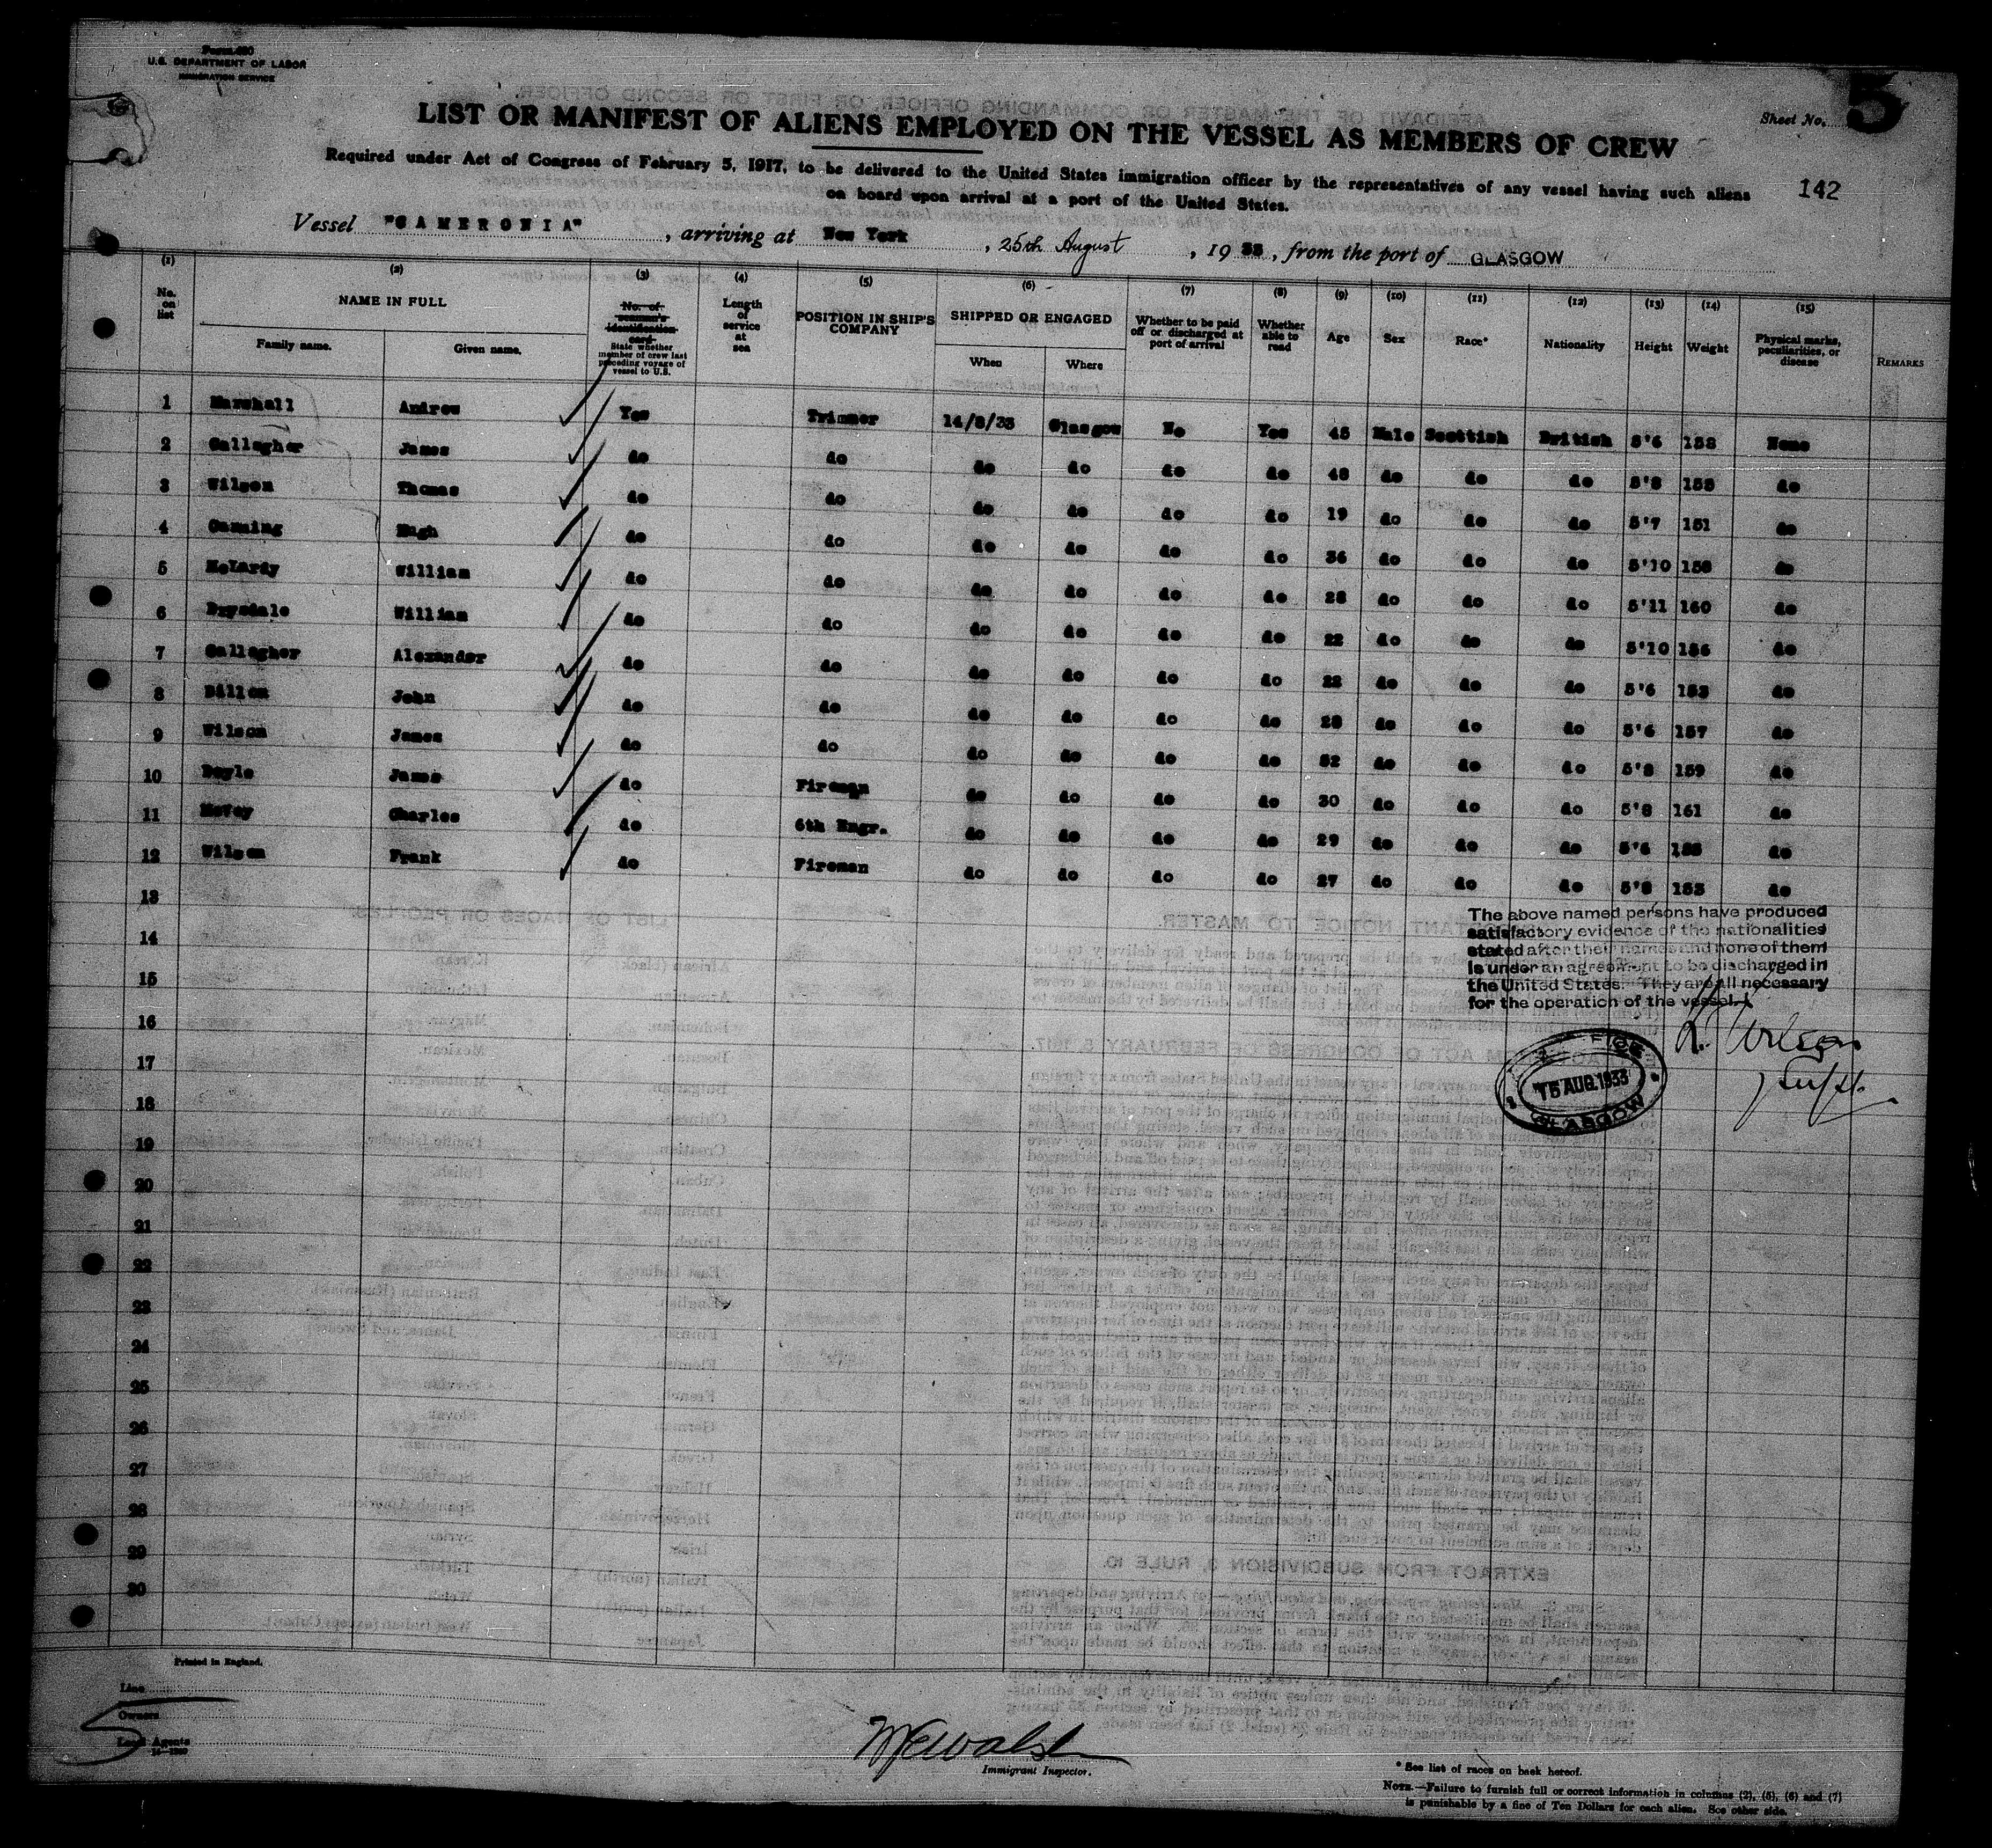 Form 680
U.S. DEPARTMENT OF LABOR
IMMIGRATION SERVICE
Sheet No. 5
LIST OR MANIFEST OF ALIENS EMPLOYED ON THE VESSEL AS MEMBERS OF CREW
Required under Act of Congress of February 5, 1917, to be delivered to the United States immigration officer by the representatives of any vessel having such aliens
on board upon arrival at a port of the United States.
142
Vessel "CAMERONIA", arriving at New York, 25th August, 1933, from the port of GLASGOW
(1) (2) (3) (4) (5) (6) (7) (8) (9) (10) (11) (12) (13) (14) (15)
No. on list NAME IN FULL Family name. Given name. No. of seaman's identification card State whether member of crew last preceding voyage of vessel to U.S. Length of service at sea POSITION IN SHIP'S COMPANY SHIPPED OR ENGAGED When Where Whether to be paid off or discharged at port of arrival Whether able to read Age Sex Race* Nationality Height Weight Physical marks, peculiarities, or disease REMARKS
1 Marshall Andrew Yes Trimmer 14/8/33 Glasgow No Yes 45 Male Scottish British 5'6 158 None
2 Gallagher James do do do do do do 48 do do do 5'8 155 do
3 Wilson Thomas do do do do do do 19 do do do 5'7 151 do
4 Hugh do do do do do do 36 do do do 5'10 158 do
5 McLardy William do do do do do do 28 do do do 5'11 160 do
6 Drysdale William do do do do do do 22 do do do 5'10 156 do
7 Gallagher Alexander do do do do do do 22 do do do 5'6 153 do
8 Dillon John do do do do do do 28 do do do 5'6 157 do
9 Wilson James do do do do do do 52 do do do 5'8 159 do
10 Doyle James do Fireman do do do do 30 do do do 5'8 161 do
11 McVey Charles do 6th Engr. do do do do 29 do do do 5'6 do
12 Wilson Frank do Fireman do do do do 27 do do do 5'8 153 do
13
14
15
16
17
18
19
20
21
22
23
24
25
26
27
28
29
30
The above named persons have produced
satisfactory evidence of the nationalities
stated after their names and none of them
is under an agreement to be discharged in
the United States. They are all necessary
for the operation of the vessel.
Wilson
Supt.
15 AUG. 1933
GLASGOW
Printed in England.
Line
Owners
Local Agents
5
Immigrant Inspector.
* See list of races on back hereof.
NOTE.—Failure to furnish full or correct information in columns (2), (5), (6) and (7)
is punishable by a fine of Ten Dollars for each alien. See other side.